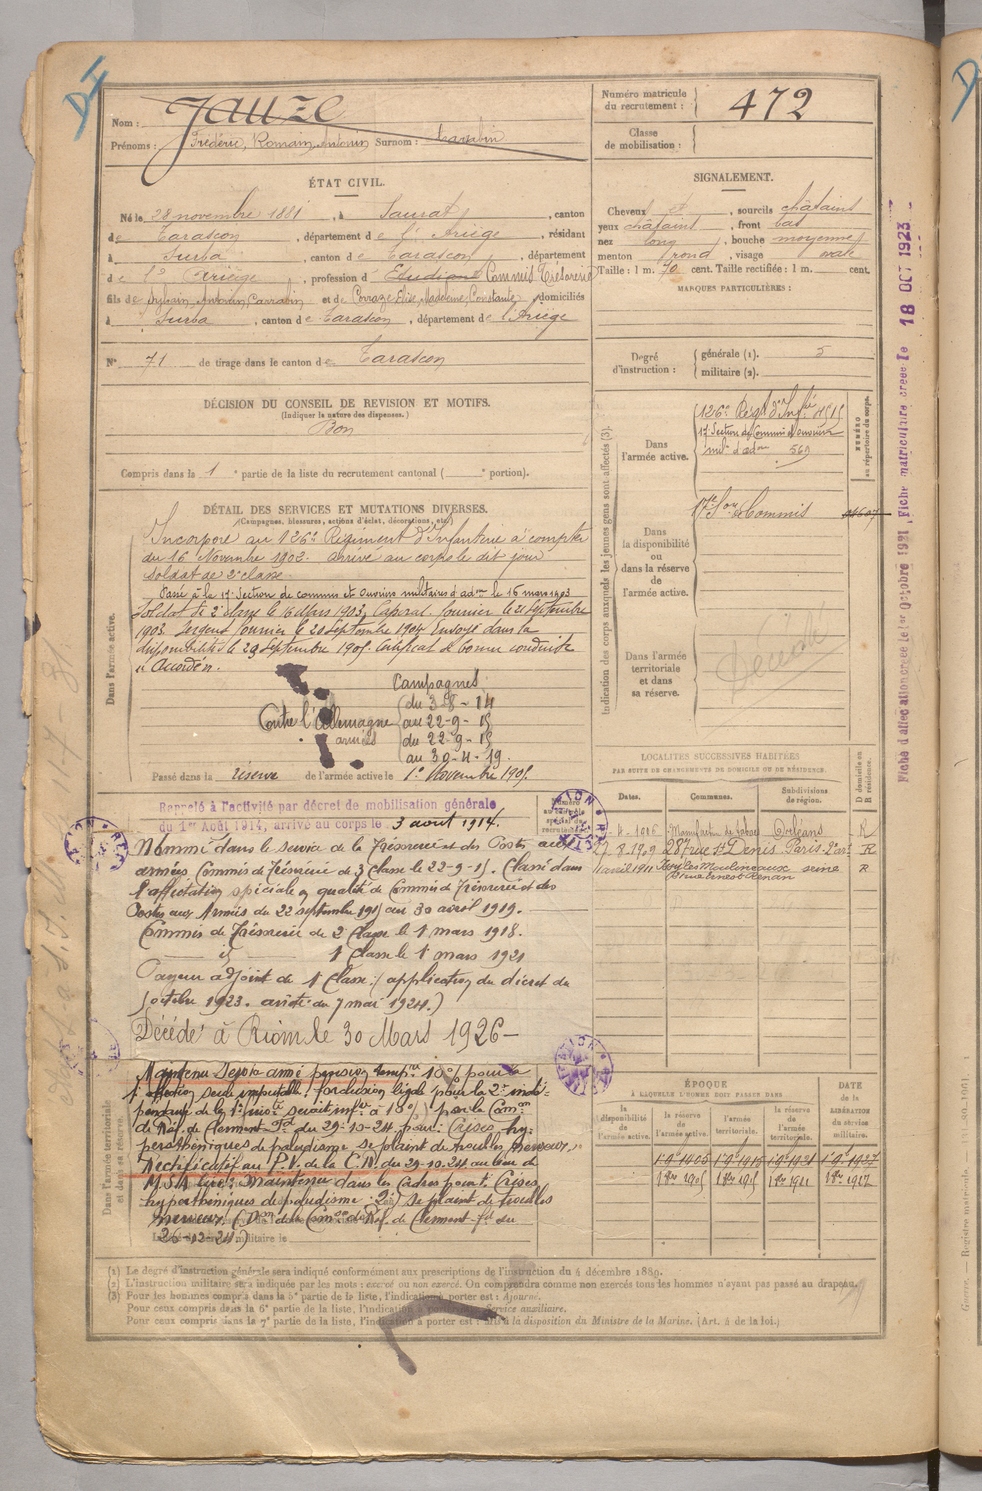 Nom : Jauze
Prénoms : Frédéric, Romain, Antonin Surnom : Carrabin
ÉTAT CIVIL.
Né le 28 novembre 1881, à Saurat, canton
de Tarascon, département de l'Ariège, résidant
à Surba, canton de Tarascon, département
de l'Ariège, profession d Etudiant Commis Trésorerie
fils de Sylvain, Antonin Carrabin et de Elise, Madeleine, Constante, domiciliés
à Surba, canton de Tarascon, département de l'Ariège
N° 71 de tirage dans le canton de Tarascon
DÉCISION DU CONSEIL DE REVISION ET MOTIFS.
(Indiquer la nature des dispenses.)
Bon
Compris dans la 1e partie de la liste du recrutement cantonal ( e portion).
DÉTAIL DES SERVICES ET MUTATIONS DIVERSES.
(Campagnes, blessures, actions d'éclat, décorations, etc.)
Dans l'armée active.
Incorporé au 126e Régiment d'Infanterie à compter
du 16 Novembre 1902. arrivé au corps le dit jour
soldat de 2e classe.
Passé à la 17e Section de commis et Ouvriers militaires d'adon le 16 mars 1903
Soldat de 2e classe le 16 Mars 1903, Caporal fourrier le 21 septembre
1903. Sergent fourrier le 20 Septembre 1904 Envoyé dans la
disponibilité le 23 Septembre 1905. Certificat de bonne conduite
"Accordé".
Campagnes
Contre l'Allemagne
du 3-8-14
au 22-9-15
armées
du 22-9-15
au 30-4-19.
Passé dans la réserve de l'armée active le 1er Novembre 1905.
Rappelé à l'activité par décret de mobilisation générale
du 1er Août 1914, arrivé au corps le 3 août 1914.
Nommé dans le service de la Trésorerie et des Postes aux
armées Commis de Trésorerie de 3 classe le 22-9-15. Classé dans
l'affectation spéciale en qualité de Commis de Trésorerie et des
Postes aux Armées du 22 septembre 1915 au 30 avril 1919.
Commis de Trésorerie de 2 classe le 1er mars 1918.
id 1 classe le 1er mars 1921
Payeur adjoint de 1 classe : (application du décret du
octobre 1923. arrêté du 7 mai 1924.)
Décédé à Riom le 30 Mars 1926
Dans l'armée territoriale et dans sa réserve.
Maintenu Service armé pension tempre 10% pour la
affection seule imputable. forclusion légale pour la 2e indé-
pendante de la 1e
de Réf. de Clermont-Fd du 29-10-24 pour : Crises hy-
persthéniques de paludisme se plaint de troubles nerveux."
Rectificatif au P.V. de la C.R. du 29-10-24 au lieu de
M.S.A. lire : Maintenu dans les cadres pour 1e Crises
hypersthéniques de paludisme : 2e) se plaint de troubles
nerveux. (Don de la Comon de Réf. de Clermont-Fd du
26-12-24.)
militaire le
Numéro matricule
du recrutement : 472
Classe
de mobilisation :
SIGNALEMENT.
Cheveux et, sourcils châtains
yeux châtains, front bas
nez long, bouche moyenne
menton rond, visage ovale
Taille : 1 m. 70 cent. Taille rectifiée : 1 m. cent.
MARQUES PARTICULIÈRES :
Degré
d'instruction :
générale (1). 5
militaire (2).
Indication des corps auxquels les jeunes gens sont affectés (3).
Dans
l'armée active.
126e Régt d'Infie
17 Section de Commis et Ouvriers
mil. d'adon 569
NUMÉRO
au répertoire du corps.
Dans
la disponibilité
ou
dans la réserve
de
l'armée active.
17e Son de Commis
Dans l'armée
territoriale
et dans
sa réserve.
Décédé
LOCALITÉS SUCCESSIVES HABITÉES
PAR SUITE DE CHANGEMENTS DE DOMICILE OU DE RÉSIDENCE.
Dates.
Communes.
Subdivisions
de région.
D domicile ou
R résidence.
Manufacture de tabac Orléans R
27.8.1909 287 rue St Denis Paris 2e arr R
11 avril 1911 Issy les Moulineaux seine R
rue Ernest Renan
ÉPOQUE
À LAQUELLE L'HOMME DOIT PASSER DANS
DATE
de la
LIBÉRATION
du service
militaire.
la
disponibilité
de
l'armée active.
la réserve
de
l'armée active.
l'armée
territoriale.
la réserve
de
l'armée
territoriale.
1er 1905 1er 1915 1er 1921 1er 1927
Fiche d'allocation créée le 1er Octobre 1921, Fiche matriculaire créée le 18 OCT 1923
(1) Le degré d'instruction générale sera indiqué conformément aux prescriptions de l'instruction du 4 décembre 1889.
(2) L'instruction militaire sera indiquée par les mots : exercé ou non exercé. On comprendra comme non exercés tous les hommes n'ayant pas passé au drapeau.
(3) Pour les hommes compris dans la 5e partie de la liste, l'indication à porter est : Ajourné.
Pour ceux compris dans la 6e partie de la liste, l'indication à porter est : Service auxiliaire.
Pour ceux compris dans la 7e partie de la liste, l'indication à porter est : Mis à la disposition du Ministre de la Marine. (Art. 4 de la loi.)